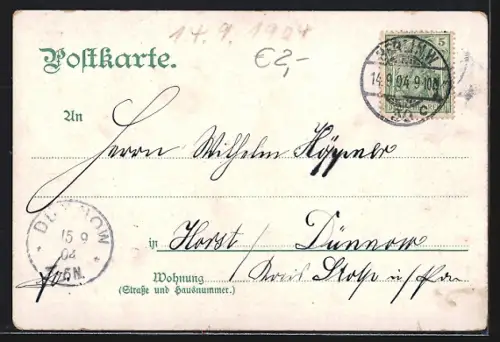 14.9.1904
€2,-
Postkarte.
5
BERLIN.W.
14.9.04.9-10
C
An
Herrn Wilhelm Höppner
DÜNNOW
15 9
04
in Horst / Dünnow
Wohnung Kreis Stolp i/Pom
(Straße und Hausnummer.)